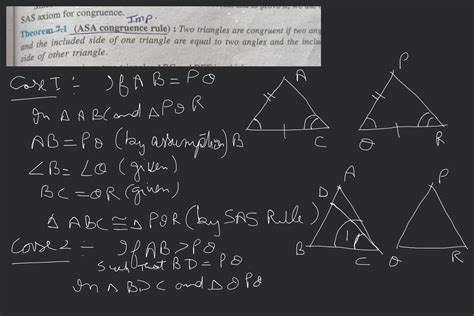 SAS axiom for congruence.
Imp.
Theorem 7.1 (ASA congruence rule) : Two triangles are congruent if two ang
and the included side of one triangle are equal to two angles and the inclu
side of other triangle.
Case I :- If AB = PQ
In △ ABC and △ PQR
AB = PQ (by assumption)
∠B = ∠Q (given)
BC = QR (given)
△ ABC ≅ △ PQR (by SAS Rule)
Case 2 :- If AB > PQ
such that BD = PQ
In △ BDC and △
A
B
C
P
Q
R
A
D
1
B
C
P
Q
R